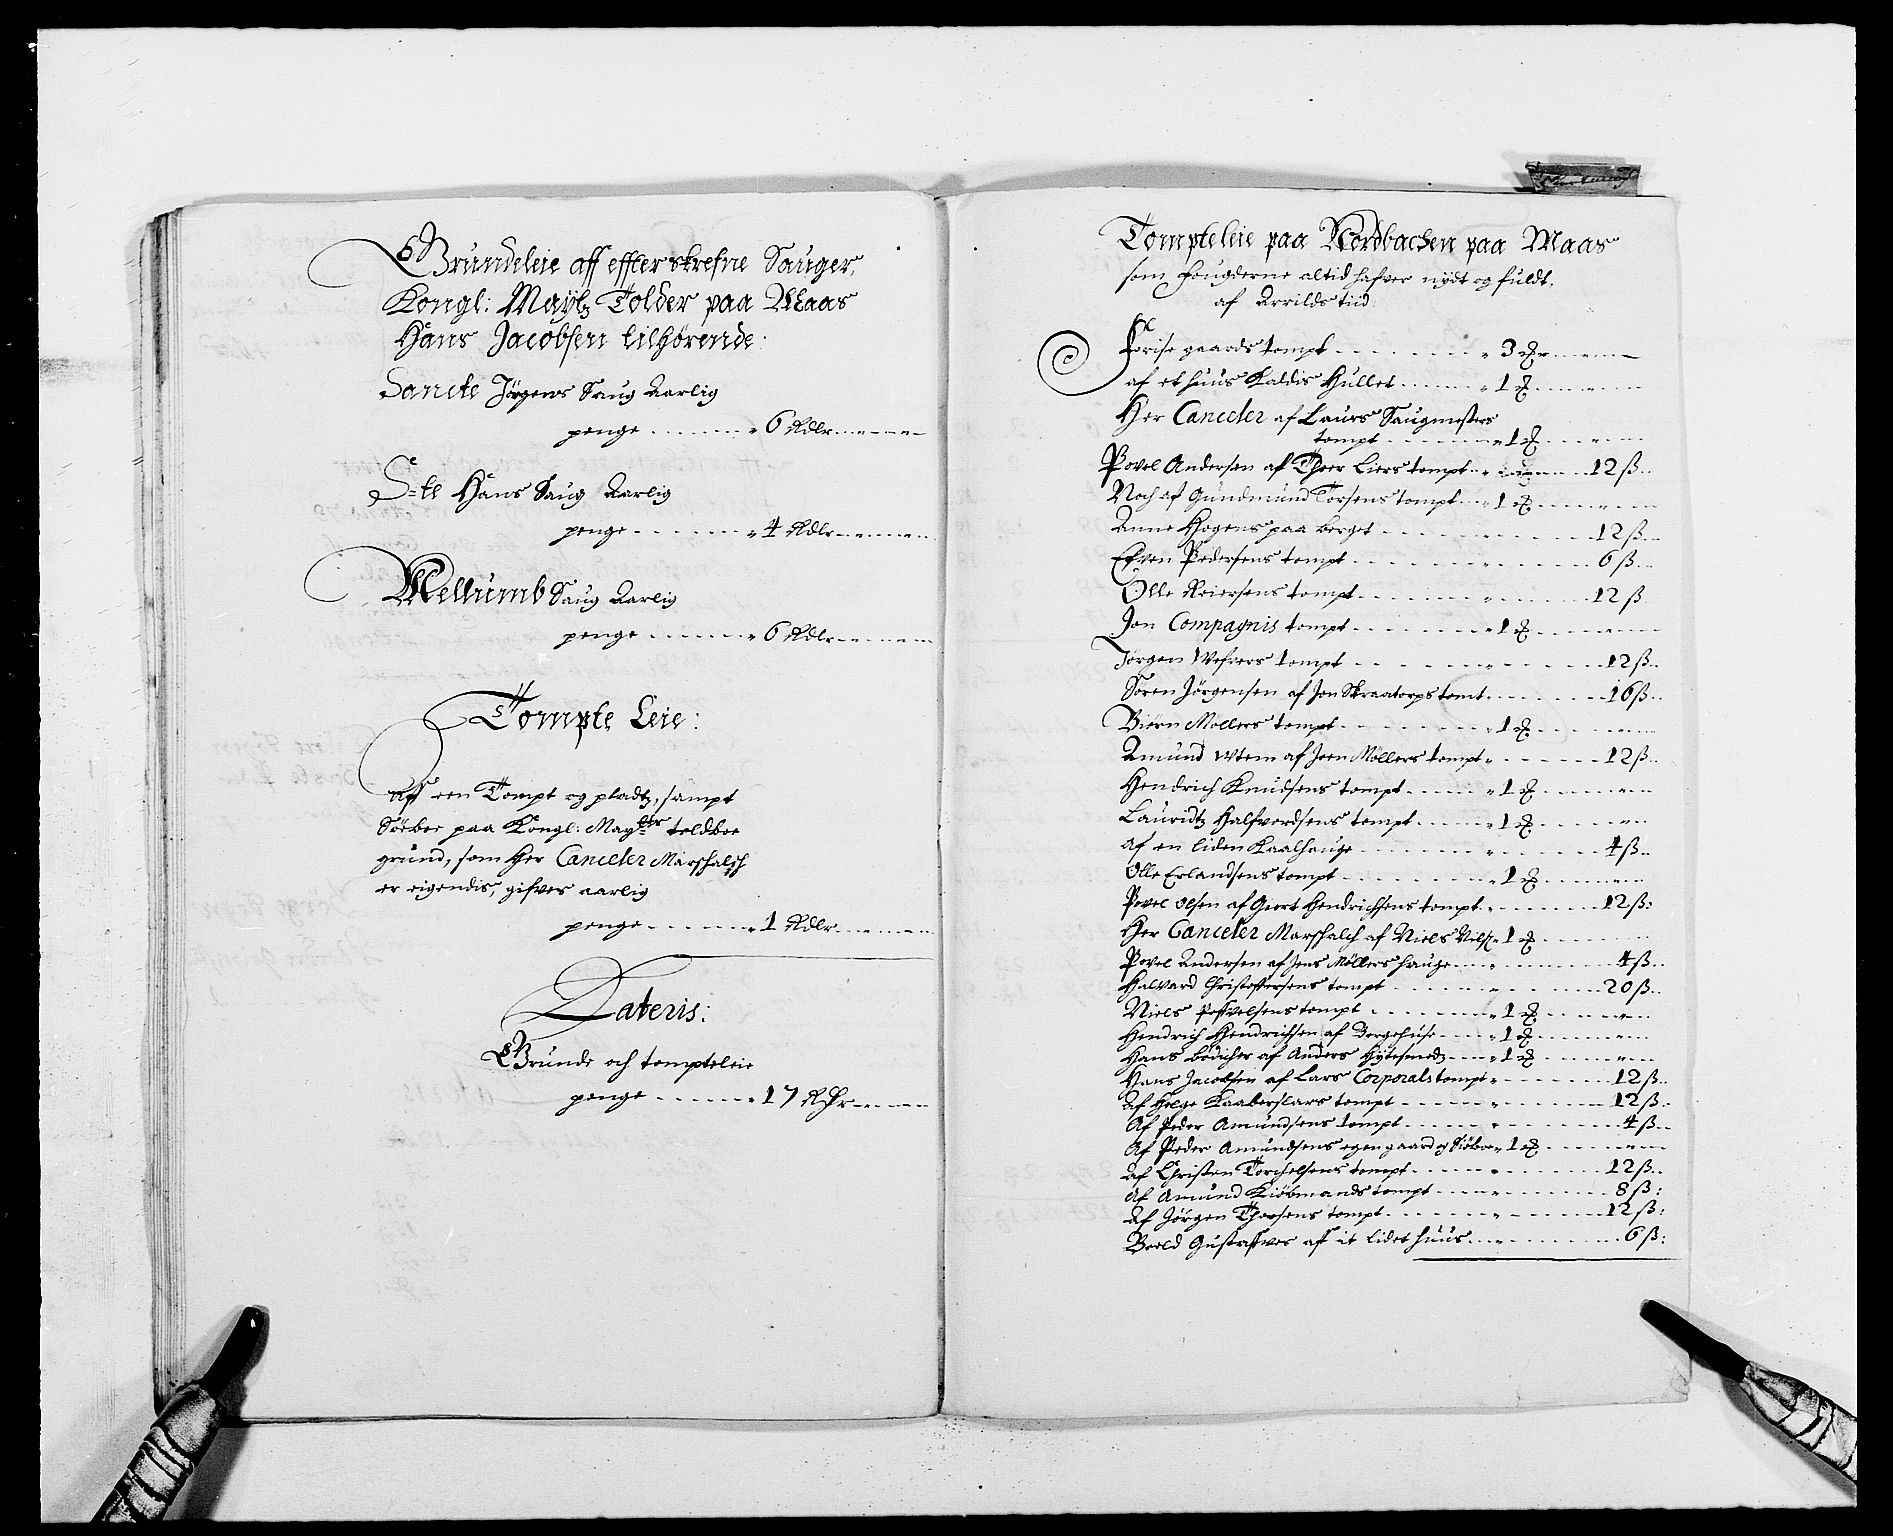 Grundeleie aff effterskrefne Sauger,
Kongl: Mayts Tolder paa Maas
Hans Jacobsen tilhørende:
Sancte Jörgens Saug Aarlig
penge . . . . . . . „ 6 Rdlr
S=te Hans Saug Aarlig
penge . . . . . . . „ 4 Rdlr
Mellumb Saug Aarlig
penge . . . . . . . „ 6 Rdlr
Tompte Leie:
Aff een Tompt og pladtz, sampt
Söeboe paa Kongl: Mayttz toldboe
grund, som Her Canceler Marschalch
er eigendis, gifves aarlig
penge . . . . . . . „ 1 Rdlr
Lateris:
Grunde och tompteleie
penge . . . . . . „ 17 Rdr
Tompteleie paa Nordbachen paa Maas
som fougderne altid hafver nydt og fuldt.
af Arrilds tiid
gaards tompt . . . . . . „ 3
af et huus Kaldis Hullet . . . . . . „ 1
Her Canceler af Laurs Saugmesters
tompt . . . . . . „ 1
Povel Andersen af Thoer Liers tompt . . . . 12 ß
Noch af Gundmund Torsens tompt . . . „ 1
Anne Hogens paa berget . . . . . . 12 ß
Efven Pedersens tompt . . . . . . 6 ß
Olle Reiersens tompt . . . . . . 12 ß
Jon Compagnis tompt . . . . . . „ 1
Jörgen Wefvers tompt . . . . . . 12 ß
Sören Jörgensen af Jon Skraatorps tomt . . . . 16 ß
Biörn Mollers tompt . . . . . . „ 1
Amund af Joen Möllers tompt „ . . . . 12 ß
Hendrich Knudsens tompt . . . . . „ 1
Lauridtz Halfvordsens tompt . . . . . „ 1
af en liden Kaalhauge . . . . . . 4 ß
Olle Erlandsens tompt . . . . . . „ 1
Povel Olsen af Giert Hendrichsens tompt „ . . . . 12 ß:
Her Canceler Marschalch af Niels „ 1
Povel Andersen af Jens Möllers hauge . . . . 4 ß
Halvard Christoffersens tompt . . . . . 20 ß
Niels tompt . . . . . „ 1
Hendrich Hendrichsen af Borgehuse . . . . „ 1
Hans Bödicher af Anders . . . . „ 1
Hans Jacobsen af Lars Corporals tompt „ . . . . 12 ß
Af Helge tompt . . . . . . 12 ß
Af Peder Amundsens tompt . . . . . . 4 ß
Af Peder Amundsens egen gaard og Siöboe „ 1
Af Christen Torchelsens tompt . . . . . 12 ß
Af Amund Kiöbmands tompt . . . . . 8 ß:
Af Jörgen Thoesens tompt . . . . . 12 ß:
Gustafves aff it lidet huus . . . . . 6 ß: